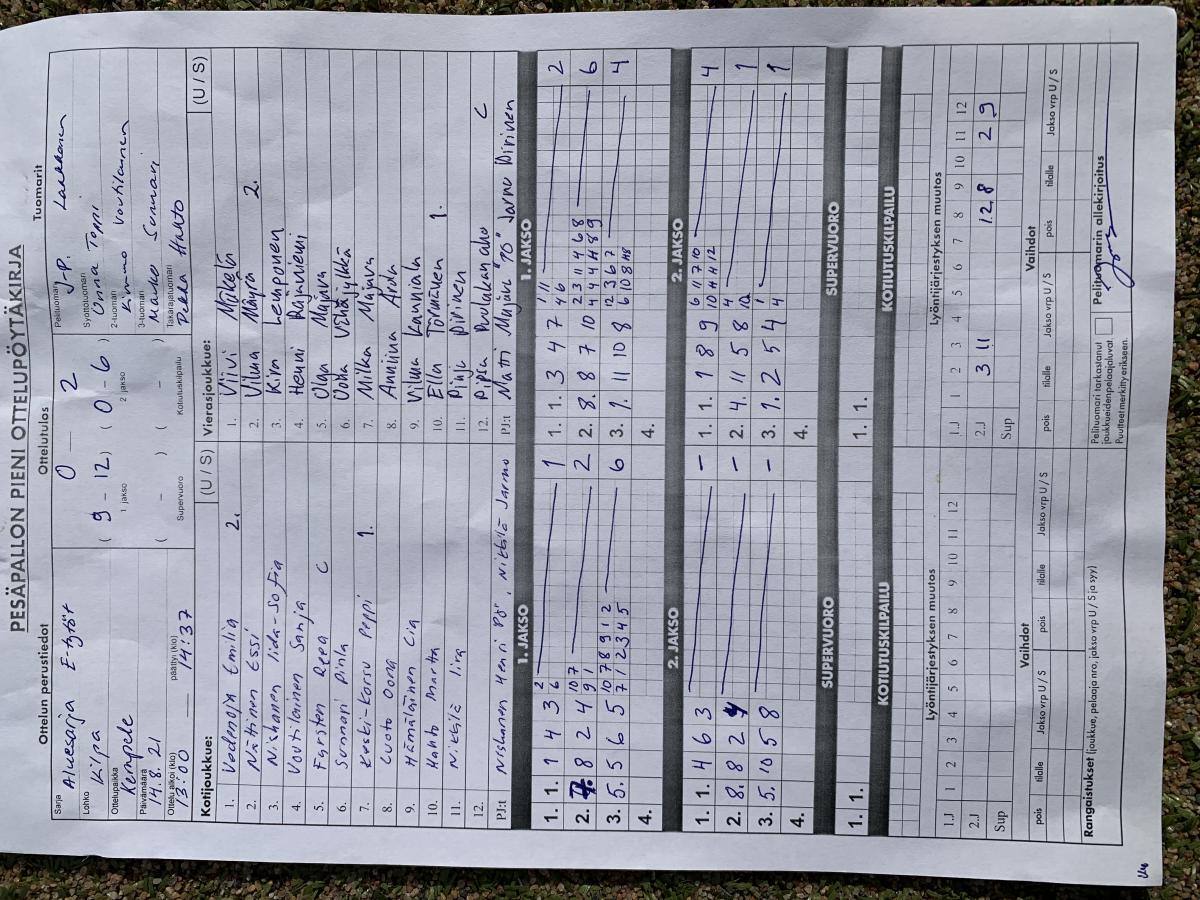 PESÄPALLON PIENI OTTELUPÖYTÄKIRJA
Ottelun perustiedot
Ottelutulos
Tuomarit
Sarja Aluesarja E-tytöt
Lohko Kilpa
Ottelupaikka Kempele
Päivämäärä 14.8.21
Ottelu alkoi (klo) 13:00 päättyi (klo) 14:37
0 – 2
( 9 – 12 ) ( 0 – 6 )
1 jakso 2 jakso
( – ) ( – )
Supervuoro Kotiutuskilpailu
Pelituomari J-P. Laukkanen
Syöttötuomari
2-tuomari Kimmo Voutilainen
3-tuomari Marko
Takarajatuomari Pekka Hahto
Kotijoukkue: (U / S)
1. Vedenoja Emilia 2.
2. Nättinen Essi
3. Niskanen Iida-Sofia
4. Voutilainen Sanja
5. Fyrsten Reea C
6. Sunnari Pinla
7. Keski-Korsu Peppi 1.
8. Luoto Oona
9. Hämäläinen Cia
10. Hahto Martta
11. Nikkilä Iira
12.
PJ:t Niskanen Henri PJ, Nikkilä Jarmo
Vierasjoukkue: (U / S)
1. Viivi Mikkelä
2. Vilma Mäyrä 2.
3. Kira Lemponen
4. Henni Rajaniemi
5. Olga Majava
6. Ooka Vähäjylkkä
7. Milka Majava
8. Anniina Arola
9. Vilma Kanniala
10. Ella Törmänen 1.
11. Pinja Piirinen
12. Pipsa Puulukanaho C
PJ:t Matti Majava "70" Jarno Piirinen
1. JAKSO
1. 1. 1 4 3 2 6 1
2. 7. 8 2 4 10 7 9 1 2
3. 5. 5 6 5 10 7 8 9 1 2 7 1 2 3 4 5 6
4.
1. JAKSO
1. 1. 3 4 7 1 11 4 6 2
2. 8. 8 7 10 2 3 11 4 6 8 4 4 4 4 8 9 6
3. 1. 11 10 8 12 3 6 7 6 10 8 4
4.
2. JAKSO
1. 1. 4 6 3 –
2. 8. 8 2 4 –
3. 5. 10 5 8 –
4.
2. JAKSO
1. 1. 1 8 9 6 11 7 10 10 11 11 12 4
2. 4. 11 5 8 4 10 1
3. 1. 2 5 4 1 4 1
4.
SUPERVUORO
1. 1.
SUPERVUORO
1. 1.
KOTIUTUSKILPAILU
KOTIUTUSKILPAILU
Lyöntijärjestyksen muutos
1.J 1 2 3 4 5 6 7 8 9 10 11 12
2.J
Sup
Lyöntijärjestyksen muutos
1.J 1 2 3 4 5 6 7 8 9 10 11 12
2.J 3 11 12 8 2 9
Sup
Vaihdot
pois tilalle Jakso vrp U / S pois tilalle Jakso vrp U / S
Vaihdot
pois tilalle Jakso vrp U / S pois tilalle Jakso vrp U / S
Rangaistukset (joukkue, pelaaja nro, jakso vrp U / S ja syy)
Pelituomari tarkastanut
joukkueiden pelaajaluvat.
Puutteet merkitty erikseen.
Pelituomarin allekirjoitus